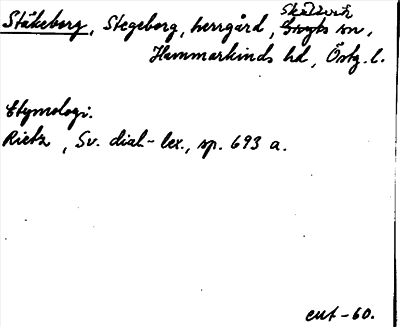 Skällvik
Ståkeborg, Stegeborg, herrgård, sn,
Hammarkinds hd, Östg. l.
Etymologi.
Rietz, Sv. dial.-lex., sp. 693 a.
eut-60.